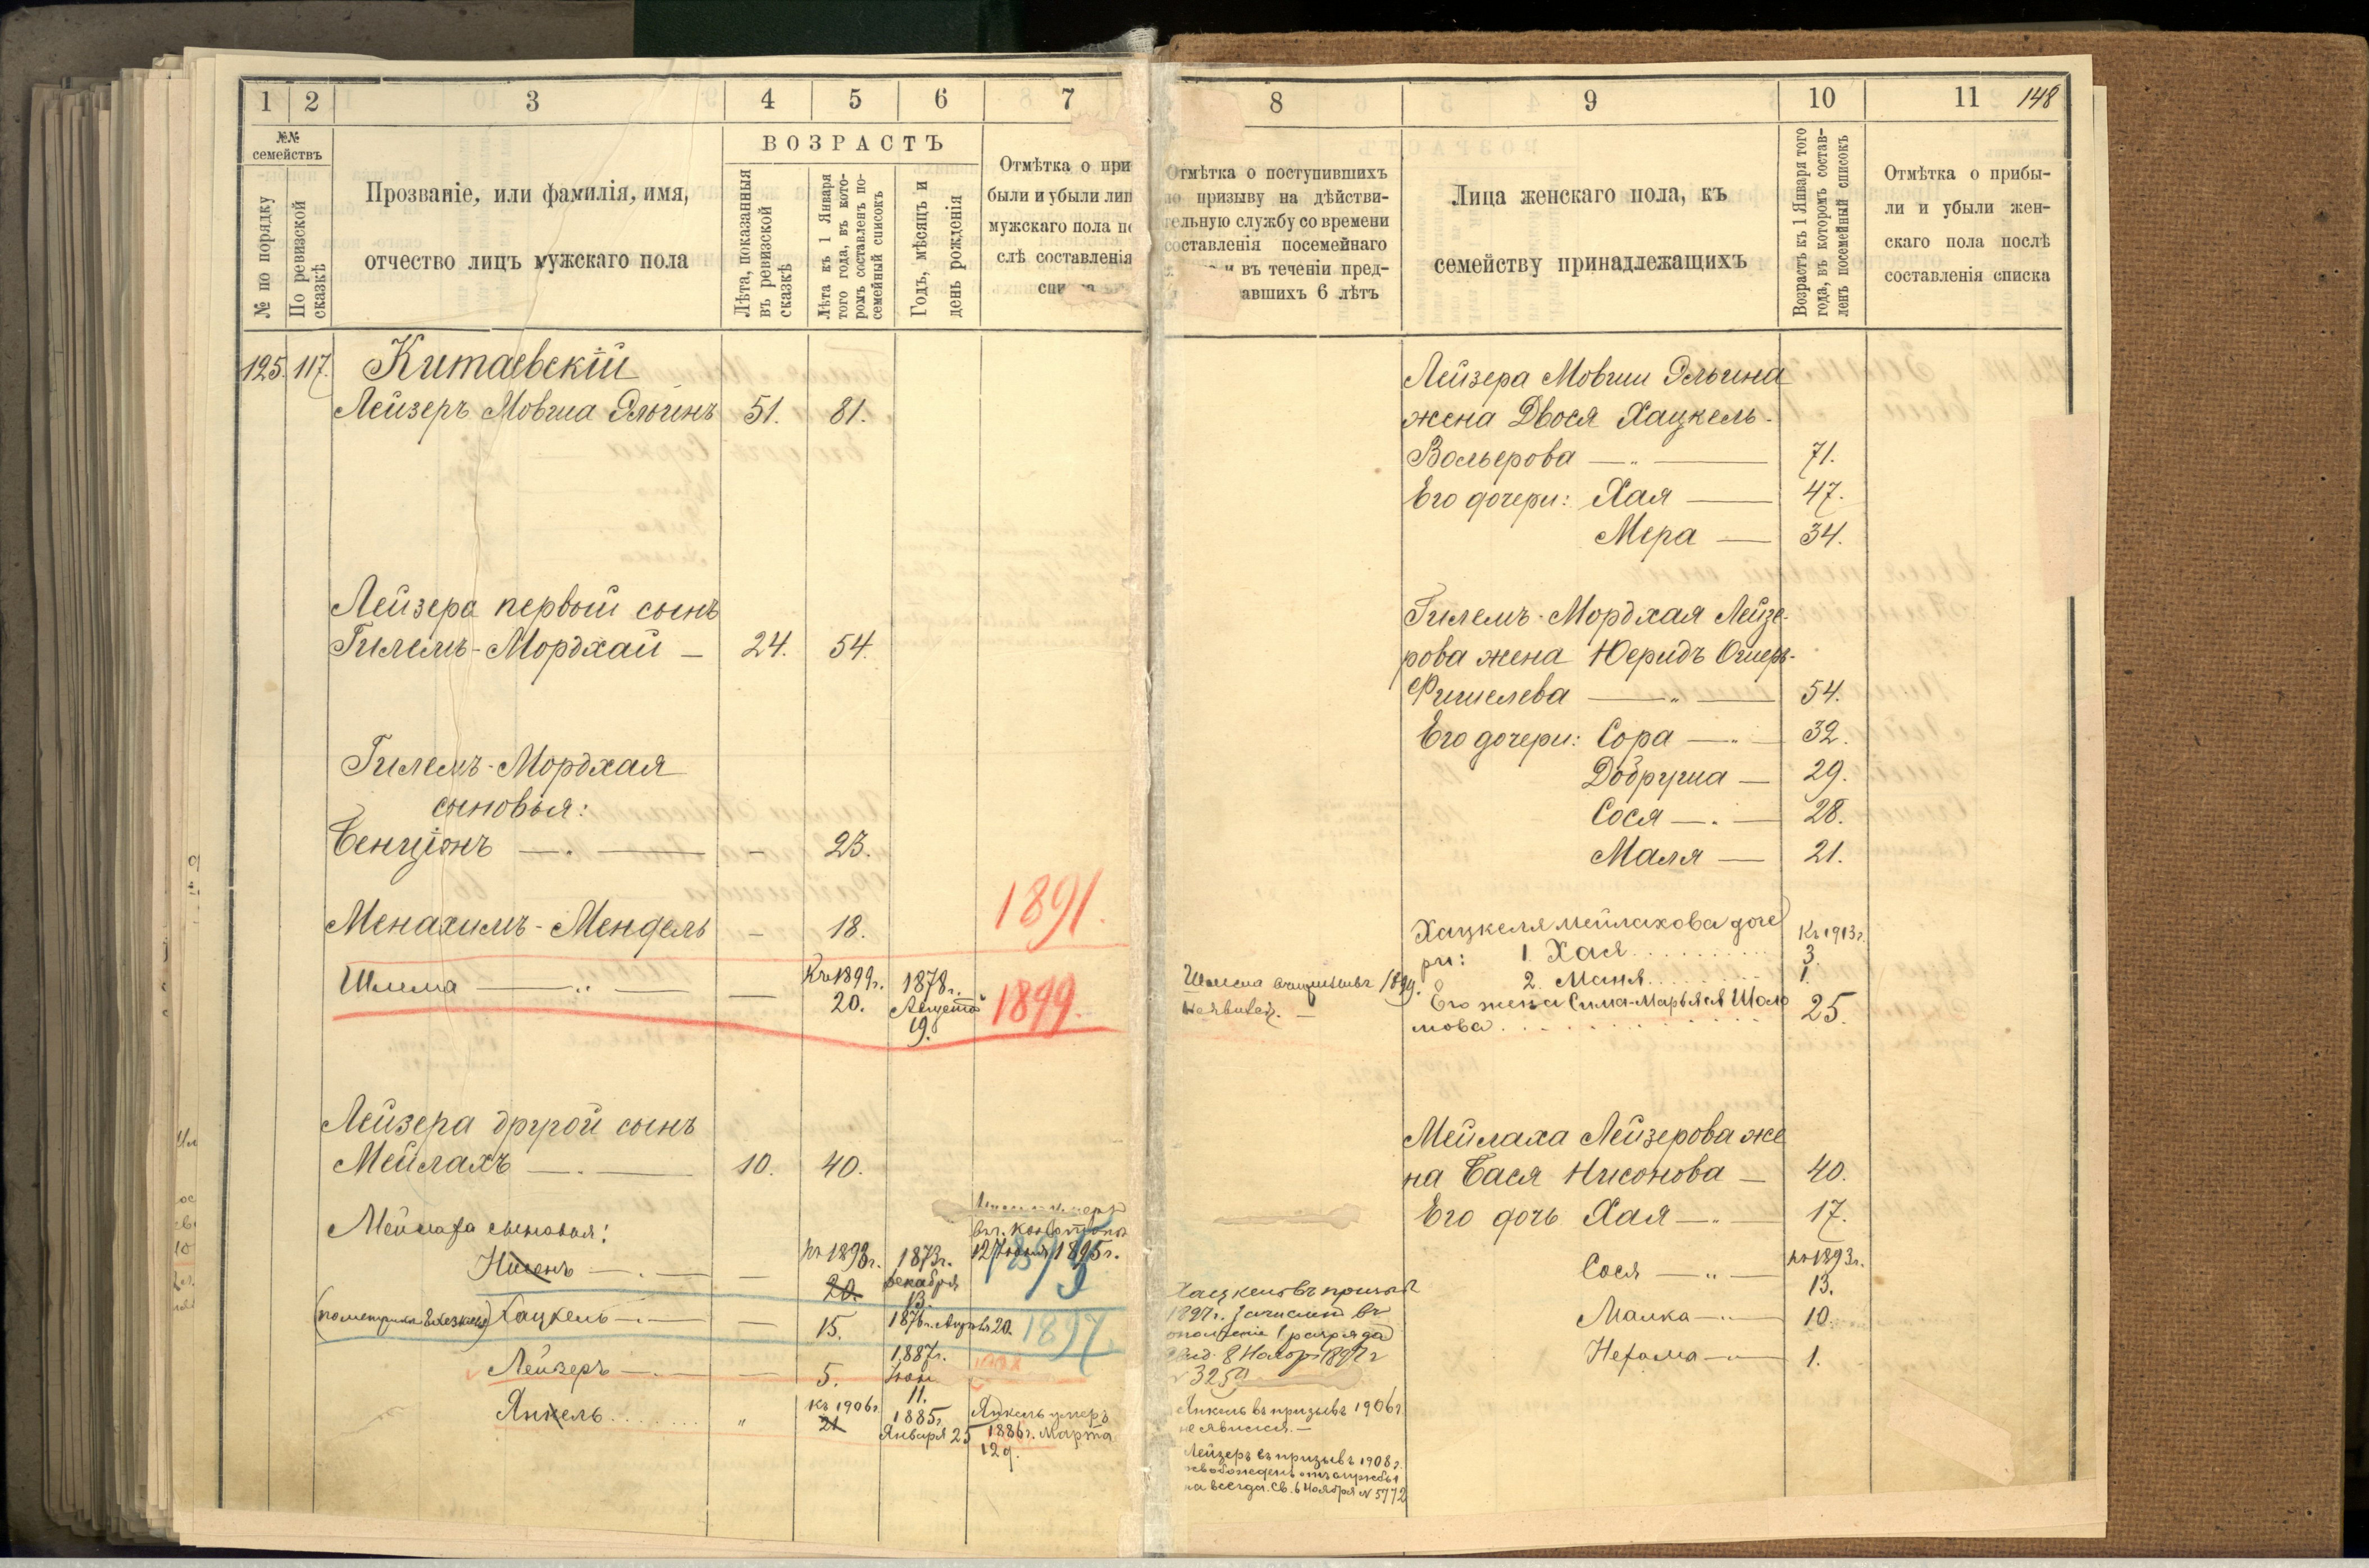 1 2 3 4 5 6 7
№№ семействъ
№ по порядку
По ревизской сказкѣ
Прозваніе, или фамилія, имя,
отчество лицъ мужскаго пола
ВОЗРАСТЪ
Лѣта, показанныя
въ ревизской
сказкѣ
Лѣта къ 1 Января
того года, въ кото-
ромъ составленъ по-
семейный списокъ
Годъ, мѣсяцъ и
день рожденія
Отмѣтка о при
были и убыли лиц
мужскаго пола по
слѣ составленія
125. 117. Китаевскій
Лейзеръ Мовша Эльгинъ 51. 81.
Лейзера первый сынъ
Гилемъ-Мордхай — 24. 54.
Гилемъ-Мордхая
сыновья:
Бенціонъ — 23.
Менахимъ-Мендель — 18. 1891.
Шлема — Къ 1899г. 20. 1878г. Августа 19. 1899.
Лейзера другой сынъ
Мейлахъ — 10. 40.
Мейлаха сыновья:
12 1895г.
Нисенъ — къ 1893г. 20. 1873г. Декабря 13.
Хацкель — 15. 1876г. 20. 1897.
Лейзеръ — 5. 1887г. 11.
Янкель " къ 1906г. 21 1885г. Января 25 Янкель умеръ
1886г. Марта
12 д.
8 9 10 11 148
Отмѣтка о поступившихъ
по призыву на дѣйстви-
тельную службу со времени
составленія посемейнаго
и въ теченіи пред-
авшихъ 6 лѣтъ
Лица женскаго пола, къ
семейству принадлежащихъ
Возрастъ къ 1 Января того
года, въ которомъ состав-
ленъ посемейный списокъ
Отмѣтка о прибы-
ли и убыли жен-
скаго пола послѣ
составленія списка
Лейзера Мовши Эльгина
жена Двося Хацкель-
Вольерова — 71.
Его дочери: Хая — 47.
Мера — 34.
Гилемъ-Мордхая Лейзе-
рова жена Юеридъ Ошеръ-
Фишелева — 54.
Его дочери: Сора — 32.
Добруша — 29.
Сося — 28.
Маля — 21.
Хацкеля Мейлахова доче
ри: Къ 1913г.
1. Хая 3.
2. Маня 1.
Его жена Сима-Марьяся Шоло
мова 25.
Шлема 1899.
неявился. —
Мейлаха Лейзерова же
на Бася Нисонова — 40.
Его дочь Хая — 17.
Сося — къ 1893г. 13.
Малка — 10.
Нехама — 1.
Хацкель въ призывъ
1897г. зачисленъ въ
ополченіе 1 разряда
8 Нояб. 1897г
Янкель въ призывъ 1906г.
не явился. —
Лейзеръ въ призывъ 1908г.
освобожденъ отъ службы
навсегда. Св. 6 Ноября № 5772